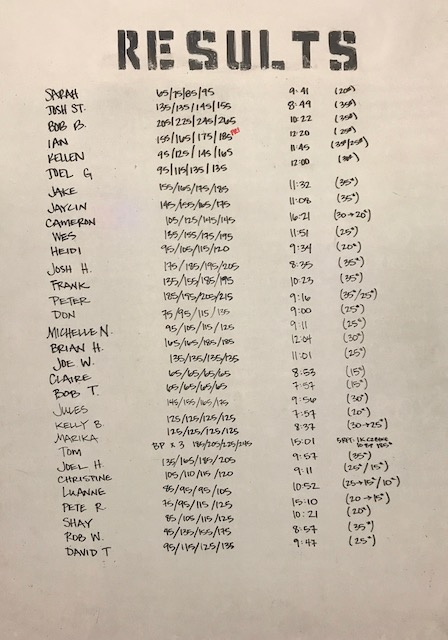 RESULTS
SARAH 65/75/85/95 9:41 (20#)
JOSH ST. 135/135/145/155 8:49 (35#)
BOB B. 205/225/245/265 10:22 (35#)
IAN 155/165/175/185 PR! 12:20 (25#)
KELLEN 95/125/145/165 11:45 (35#/25#)
JOEL G 95/115/135/135 12:00 (30#)
JAKE 155/165/175/185 11:32 (35#)
JAYLIN 145/155/165/175 11:08 (35#)
CAMERON 105/125/145/145 16:21 (30→20#)
WES 135/155/175/195 11:51 (25#)
HEIDI 95/105/115/120 9:34 (20#)
JOSH H. 175/185/195/205 8:35 (35#)
FRANK 135/155/185/195 10:23 (35#)
PETER 185/195/205/215 9:16 (35#/25#)
DON 75/95/115/135 9:00 (25#)
MICHELLE N. 95/105/115/125 9:11 (25#)
BRIAN H. 165/165/185/185 12:04 (30#)
JOE W. 135/135/135/135 11:01 (25#)
CLAIRE 65/65/65/65 8:53 (15#)
BOB T. 65/65/65/65 7:57 (15#)
JULES 145/155/165/175 9:56 (30#)
KELLY B. 125/125/125/125 7:57 (20#)
MARIKA 125/125/125/125 8:37 (30→25#)
TOM BP x 3 185/205/225/245 15:01
JOEL H. 135/165/185/205 9:57 (35#)
CHRISTINE 105/110/115/120 9:11 (25#/15#)
LUANNE 85/95/95/105 10:52 (25→15#/10#)
PETE R 75/95/115/125 15:10 (20→15#)
SHAY 85/105/115/125 10:21 (20#)
ROB W. 95/135/155/175 8:57 (35#)
DAVID T 95/115/125/135 9:47 (25#)